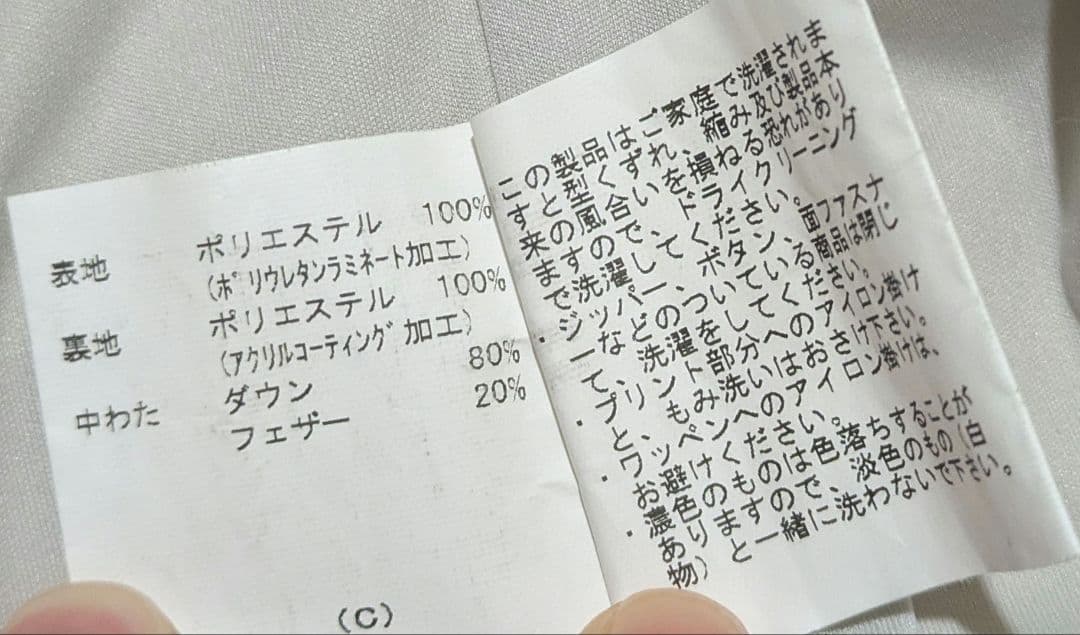 表地 ポリエステル 100%
(ポリウレタンラミネート加工)
裏地 ポリエステル 100%
(アクリルコーティング加工)
中わた ダウン 80%
フェザー 20%
(C)
この製品はご家庭で洗濯されま
すと型くずれ、縮み及び製品本
来の風合いを損ねる恐れがあり
ますので、ドライクリーニング
で洗濯してください。
・ジッパー、ボタン、面ファスナ
ーなどのついている商品は閉じ
て、洗濯をしてください。
・プリント部分へのアイロン掛け
と、もみ洗いはおさけ下さい。
・ワッペンへのアイロン掛けは、
お避けください。
・濃色のものは色落ちすることが
ありますので、淡色のもの(白
物)と一緒に洗わないで下さい。